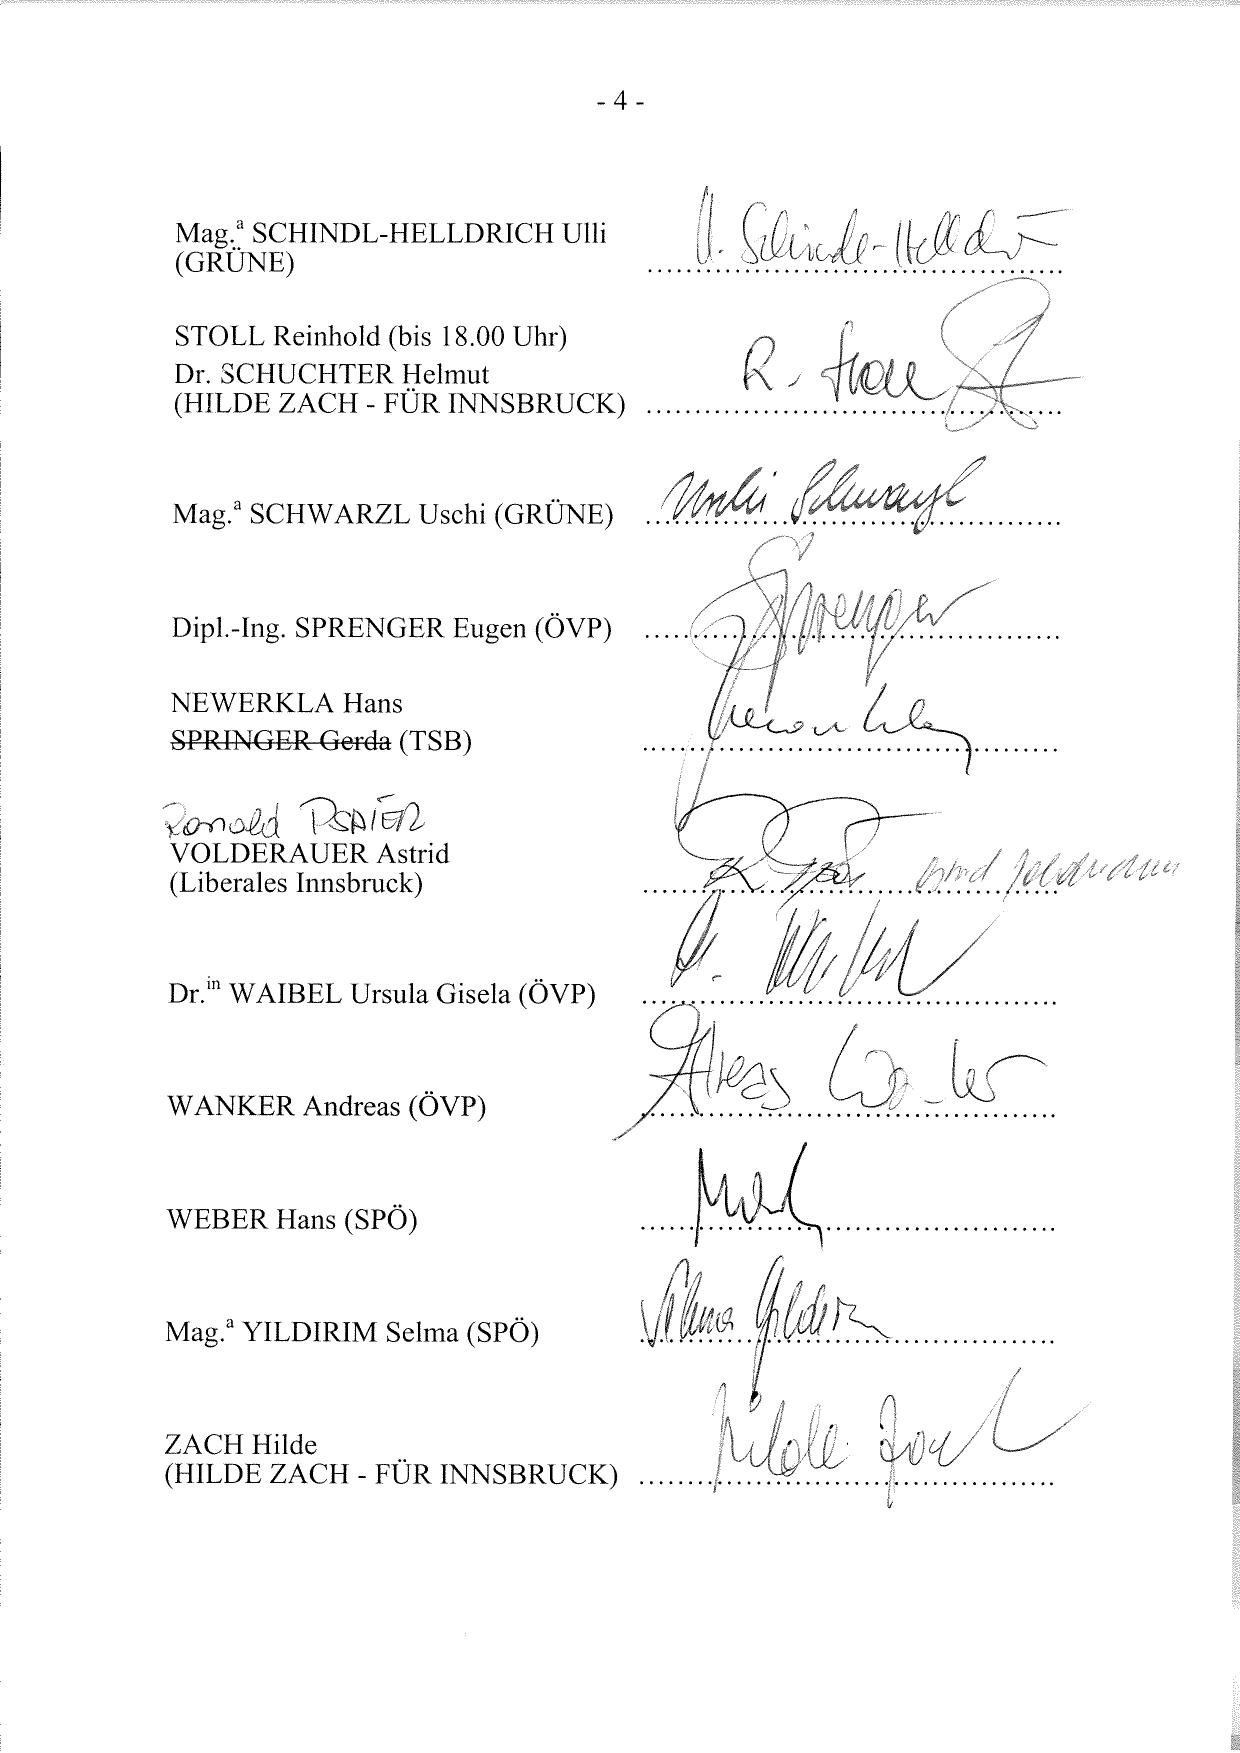 - 4 -
Mag.ª SCHINDL-HELLDRICH Ulli
(GRÜNE)
U. Schindl-Helldri
STOLL Reinhold (bis 18.00 Uhr)
Dr. SCHUCHTER Helmut
(HILDE ZACH - FÜR INNSBRUCK)
R. Stoll
Mag.ª SCHWARZL Uschi (GRÜNE)
Uschi Schwarzl
Dipl.-Ing. SPRENGER Eugen (ÖVP)
Sprenger
NEWERKLA Hans
SPRINGER Gerda (TSB)
Newerkla
Ronald PSAIER
VOLDERAUER Astrid
(Liberales Innsbruck)
Astrid Volderauer
Dr.ⁱⁿ WAIBEL Ursula Gisela (ÖVP)
WANKER Andreas (ÖVP)
Andreas Wanker
WEBER Hans (SPÖ)
Mag.ª YILDIRIM Selma (SPÖ)
Selma Yildirim
ZACH Hilde
(HILDE ZACH - FÜR INNSBRUCK)
Hilde Zach